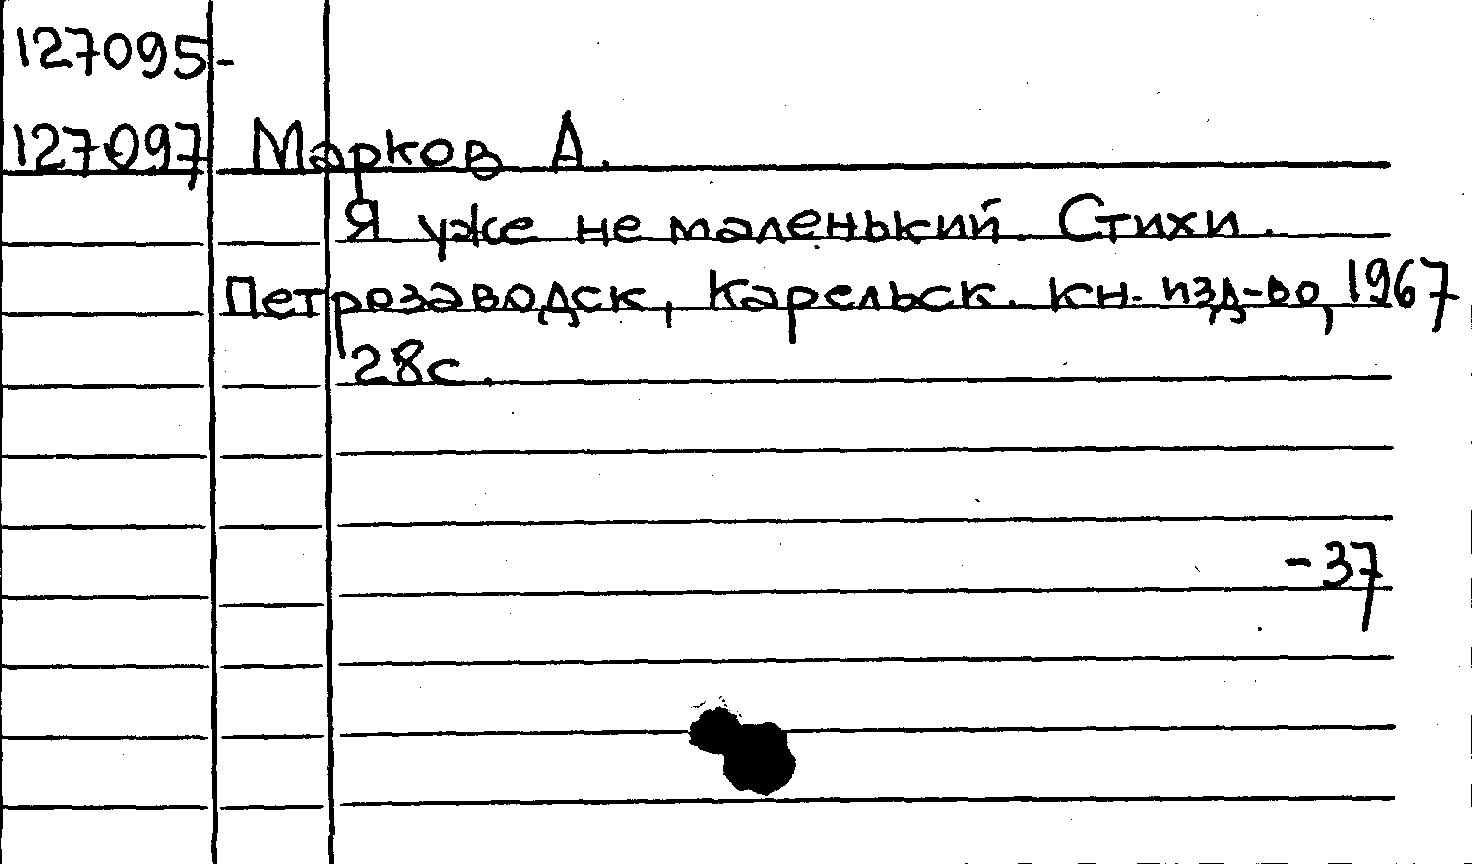 127095-
127097 Марков А.
Я уже не маленький. Стихи.
Петрозаводск, Карельск. кн. изд-во, 1967
28с.
-37